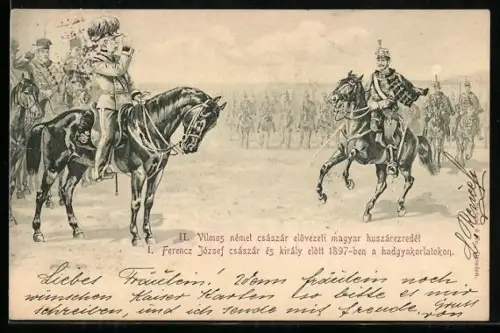 II. Vilmos német császár elővezeti magyar huszárezredét
I. Ferencz József császár és király előtt 1897-ben a hadgyakorlatokon.
Liebes Fräulein! Wenn fräulein noch
wünschen Kaiser Karten so bitte es mir
schreiben, und ich sende mit Freude, Gruss
von